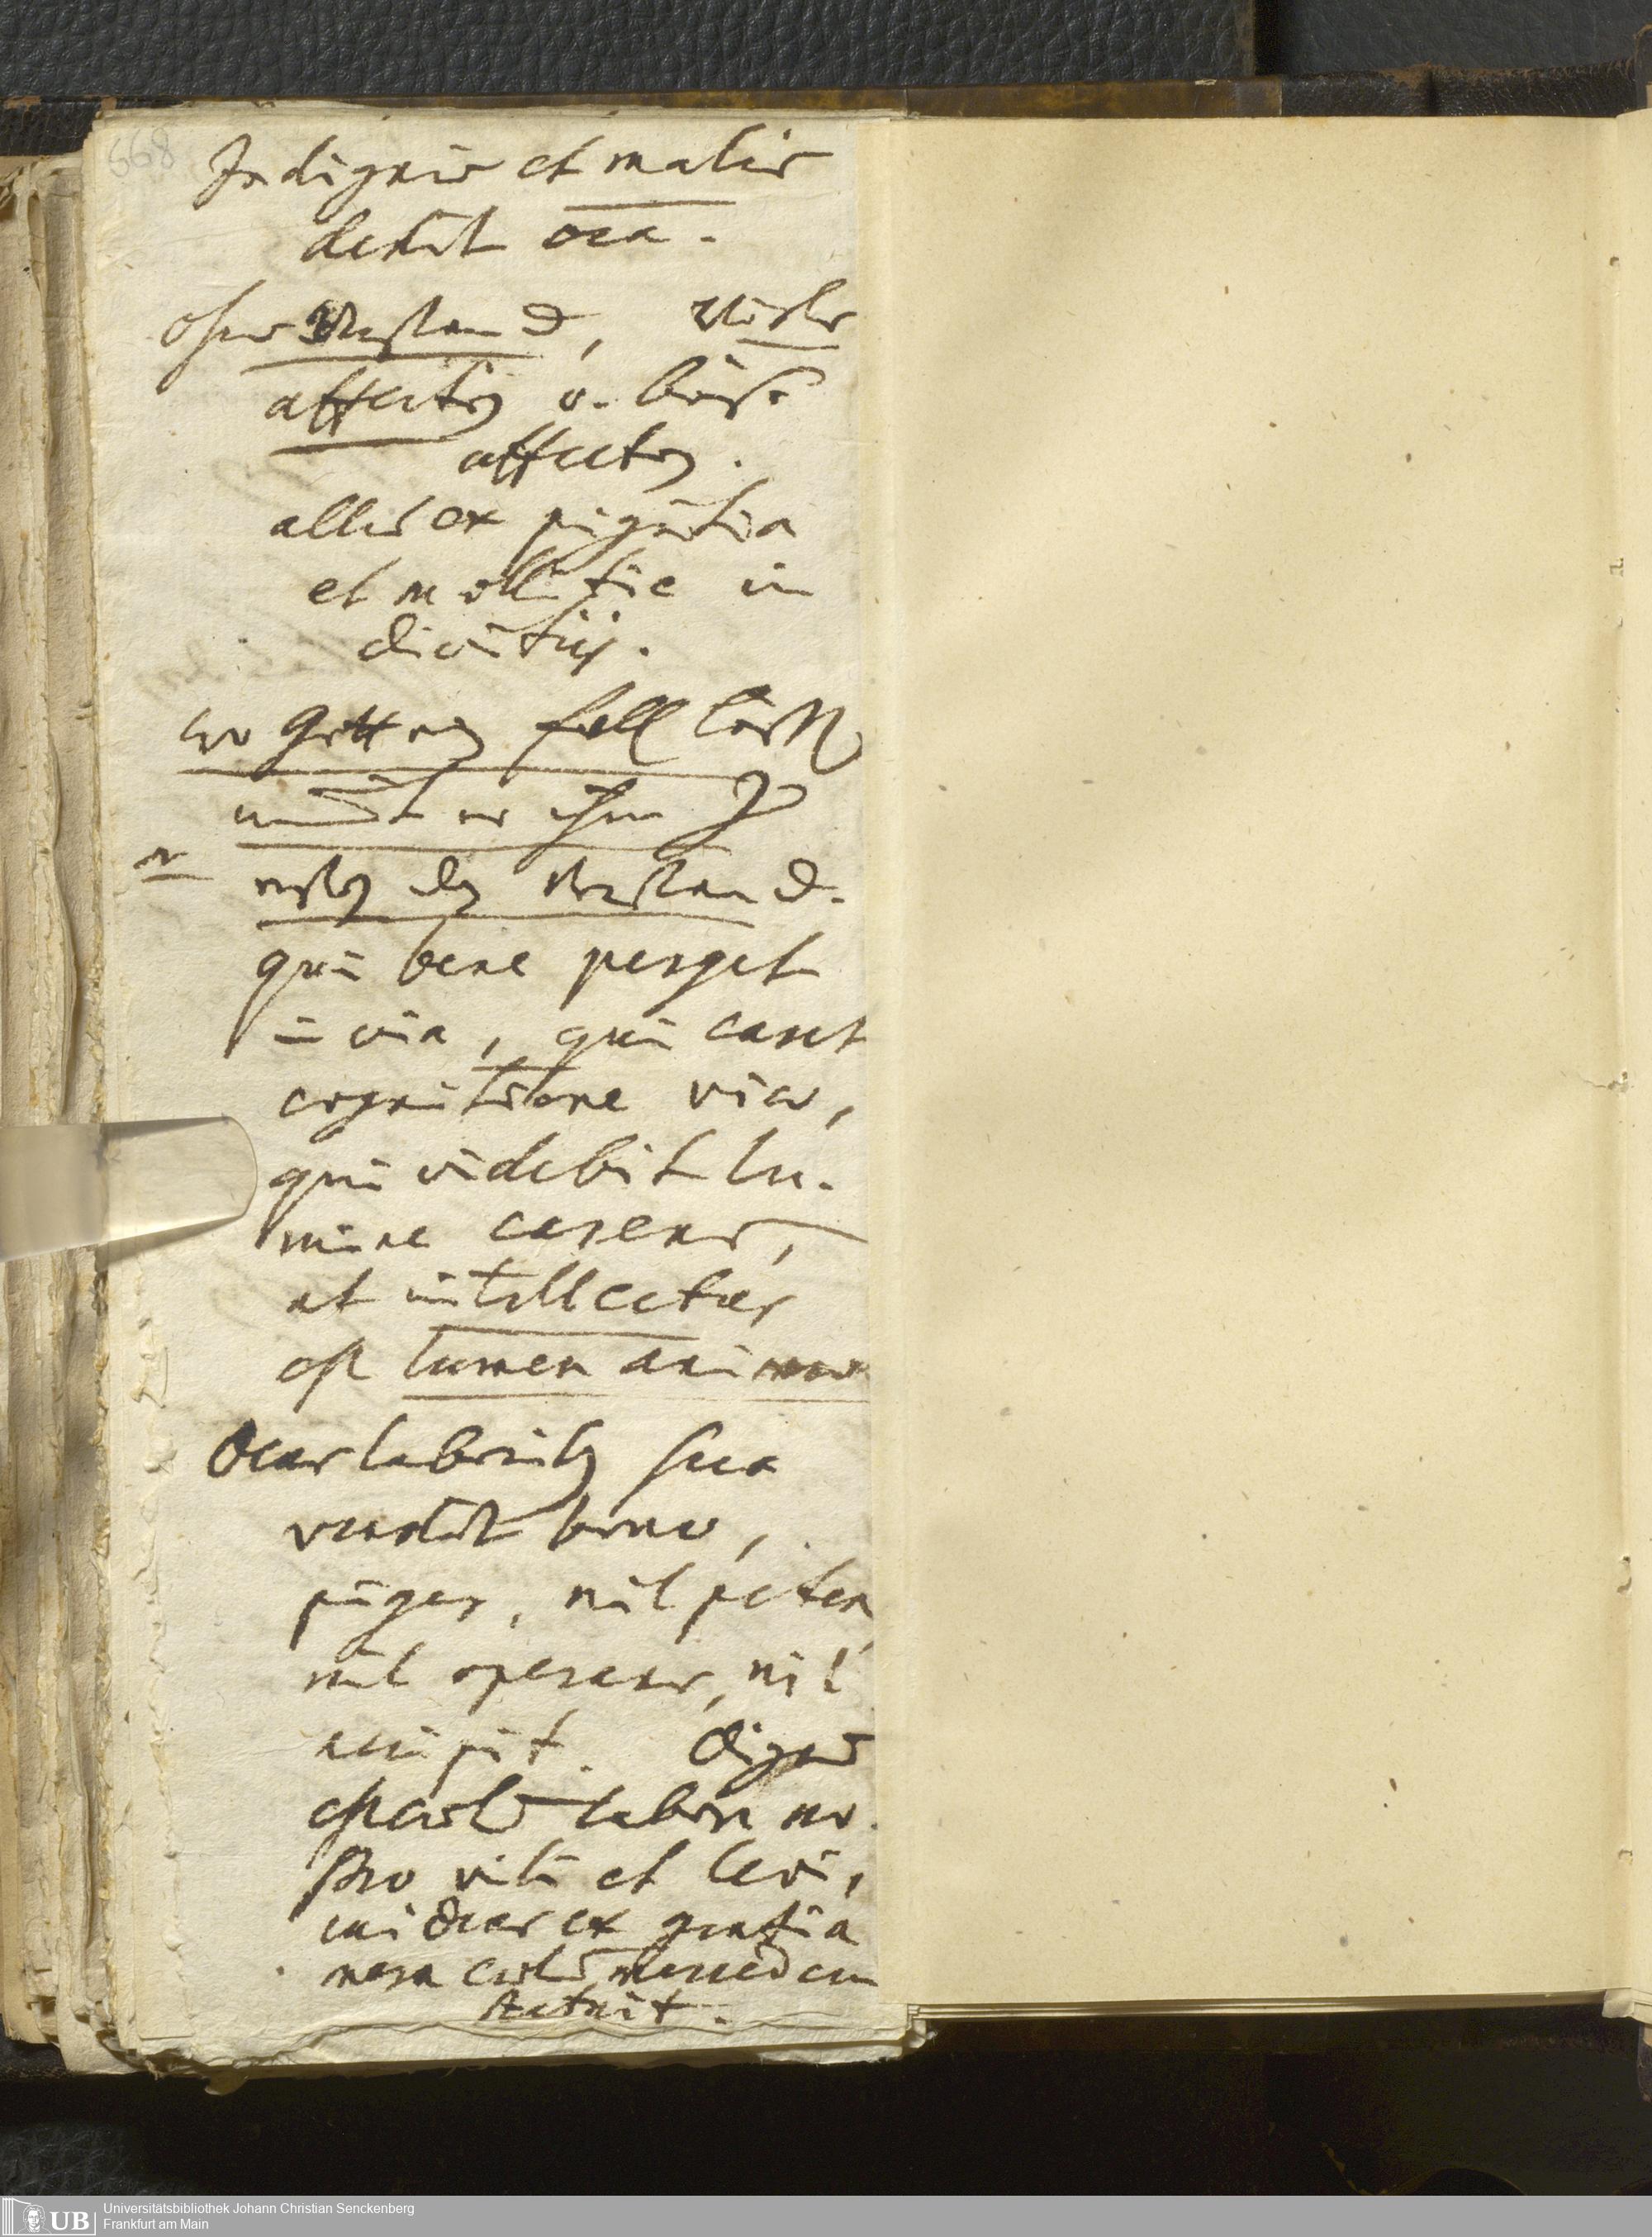 668
Indignis et malis
dedit oca.
ohne Verstand, viele
affecten u. böse
affecten.
alles ex pigritia
et mollitie in
divitiis.
wo Gott ein fall läst,
nimt er ihm
erst den verstand.
qui bene perget
in via, qui caret
cognitione viae,
qui videbit lu-
mine carens,
at intellectus
est lumen animae
Deus laboribus sua
vendit bona,
piger, nil petens
nil operans, nil
accipit. Dignus
est labore no-
stro vili et levi,
cui Deus ex gratia
mera mercedem
statuit.
UB Universitätsbibliothek Johann Christian Senckenberg
Frankfurt am Main